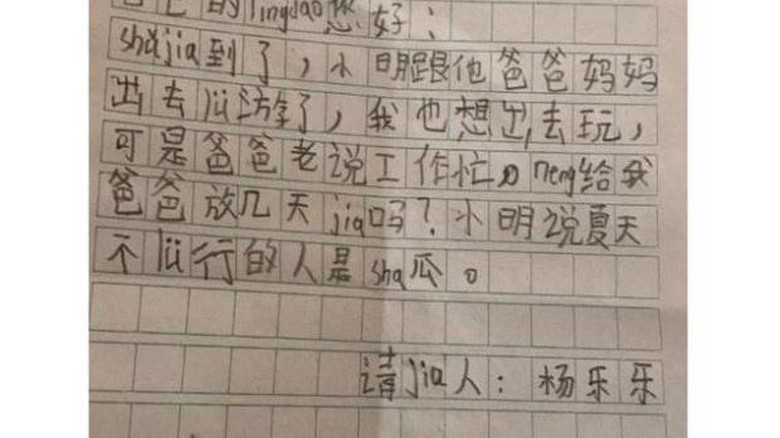 的lingdao您好：
shǔjia到了，小明跟他爸爸妈妈
出去lü游了，我也想出去玩，
可是爸爸老说工作忙。neng给我
爸爸放几天jia吗？小明说夏天
不lü行的人是sha瓜。
请jia人：杨乐乐